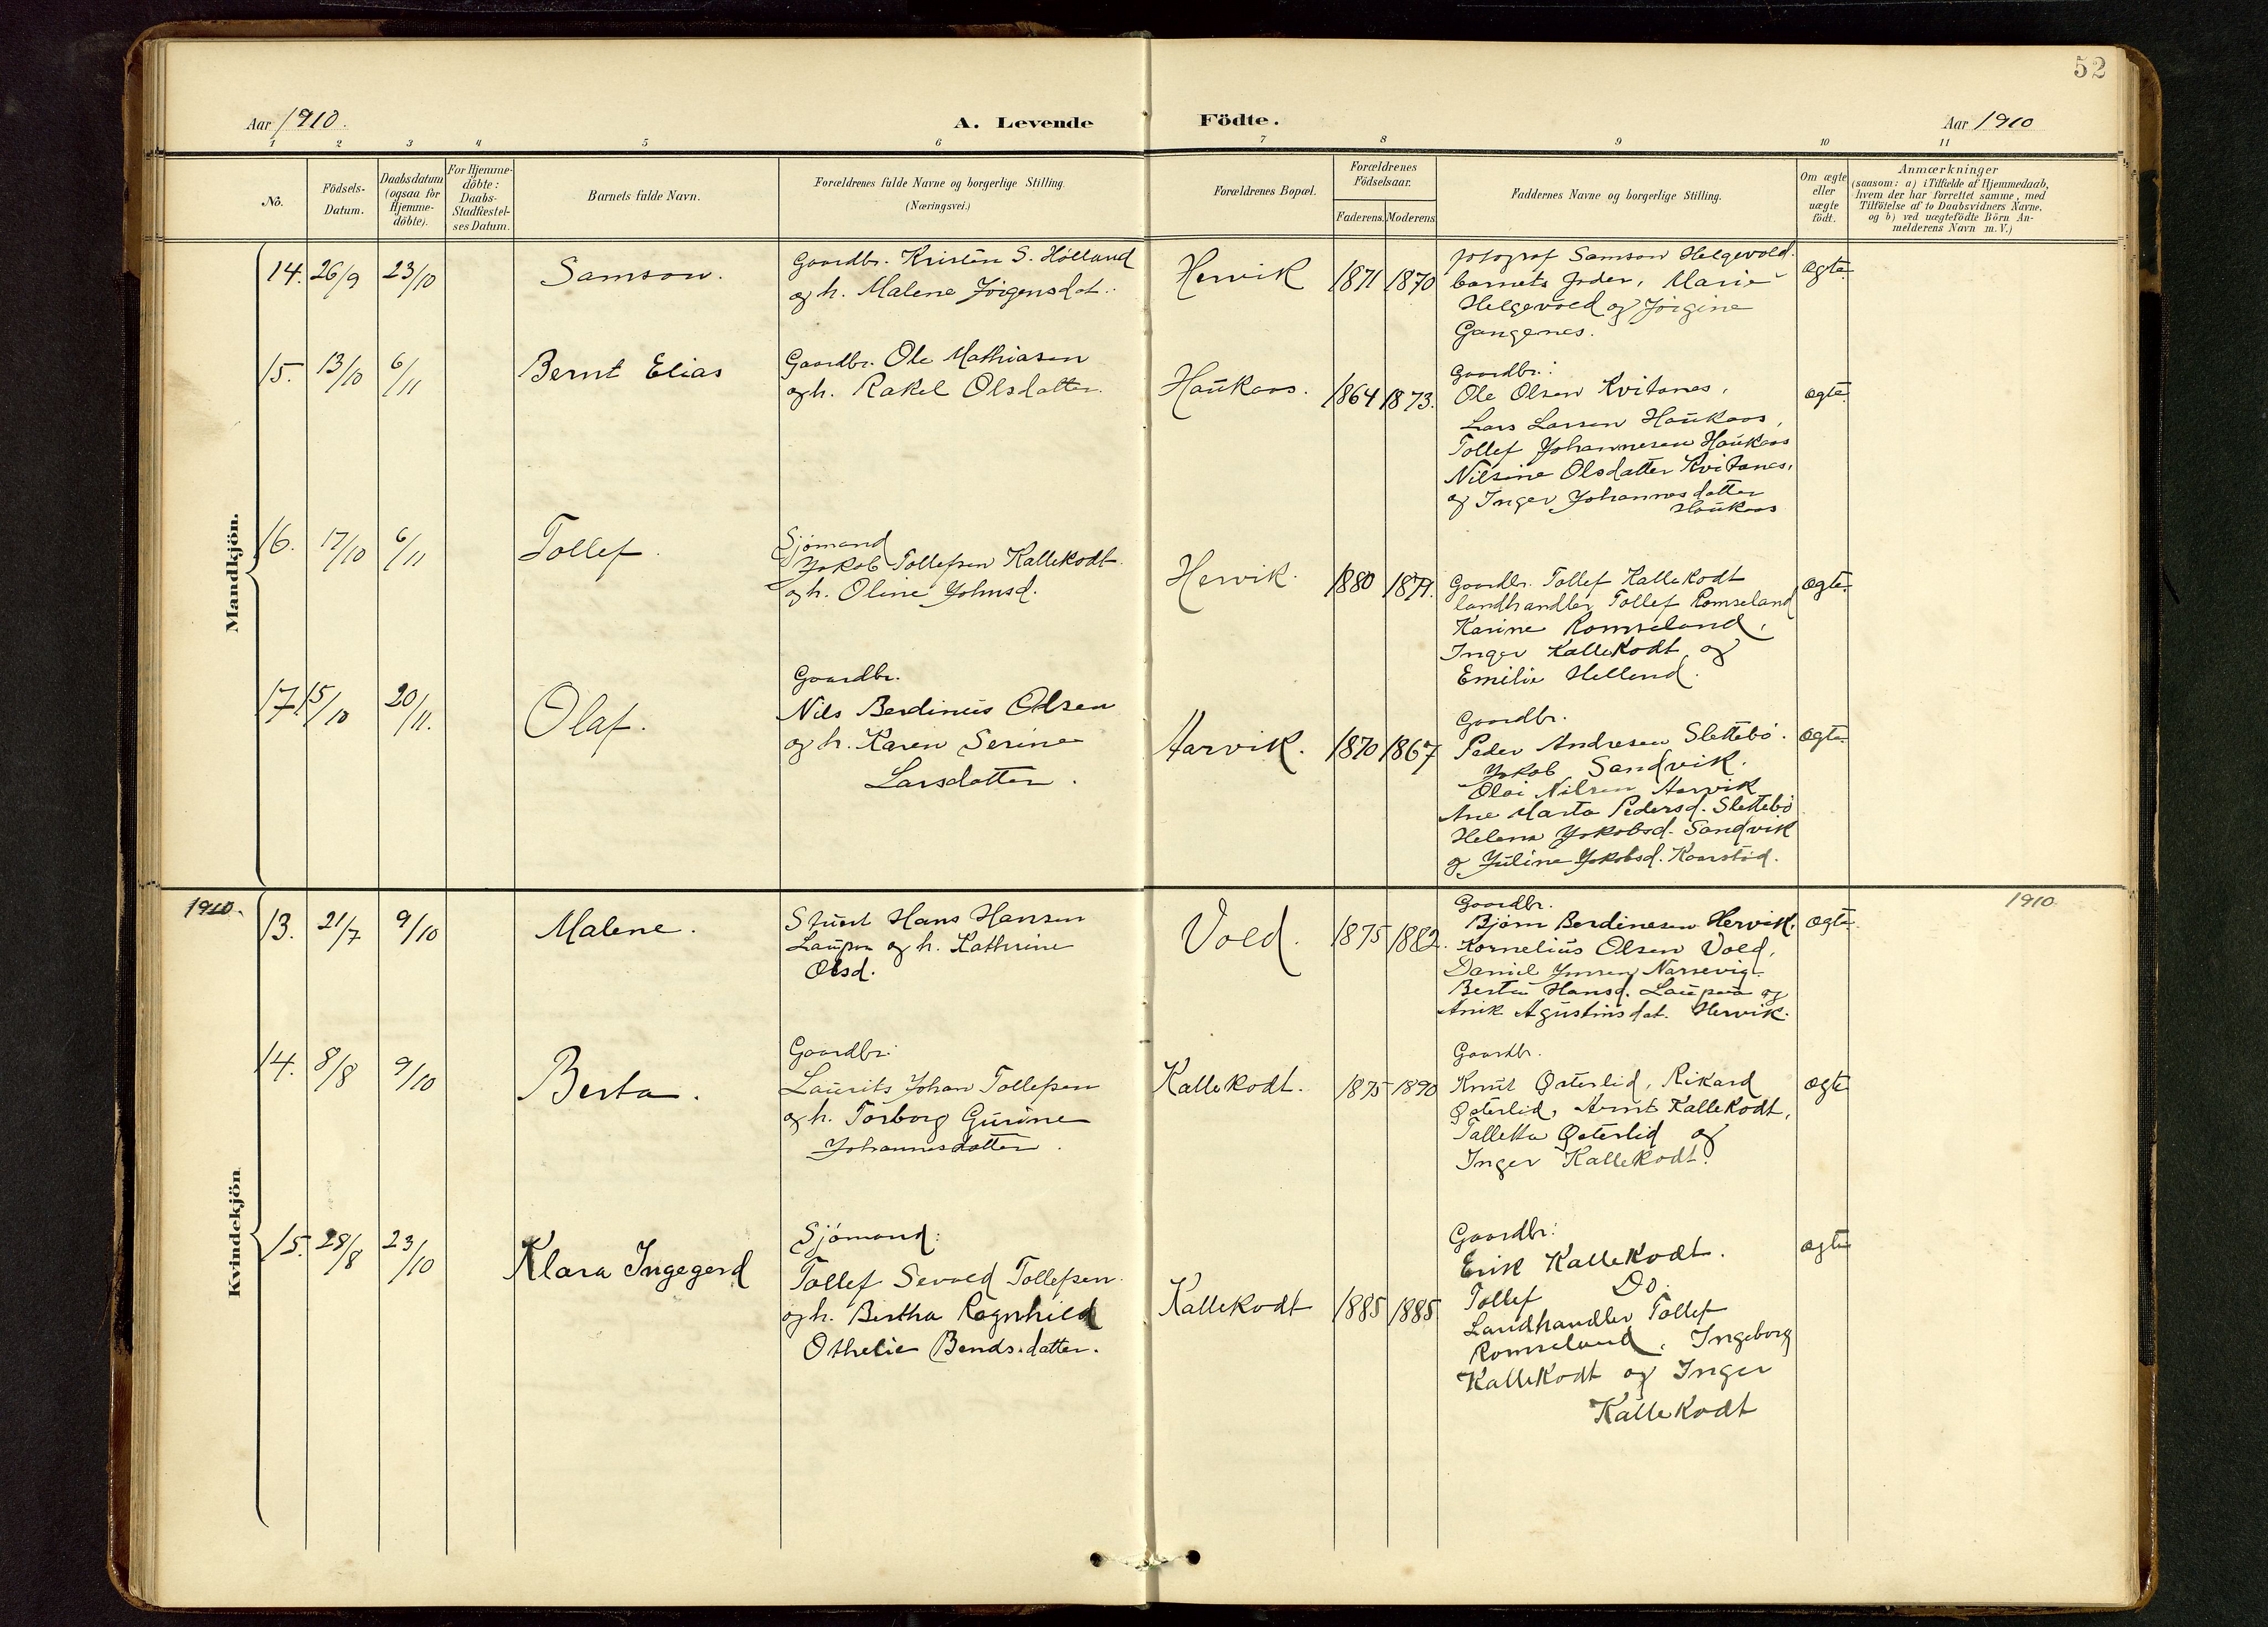 52
Aar 1910.
A. Levende Födte.
Aar 1910
1 2 3 4 5 6 7 8 9 10 11
No.
Födsels-
Datum.
Daabsdatum
(ogsaa for
Hjemme-
döbte).
For Hjemme-
döbte:
Daabs-
Stadfæstel-
ses Datum.
Barnets fulde Navn.
Forældrenes fulde Navne og borgerlige Stilling.
(Næringsvei.)
Forældrenes Bopæl.
Forældrenes
Födselsaar.
Faderens. Moderens.
Faddernes Navne og borgerlige Stilling.
Om ægte
eller
uægte
födt.
Anmærkninger
(saasom: a) i Tilfælde af Hjemmedaab,
hvem der har forrettet samme, med
Tilföielse af to Daabsvidners Navne,
og b) ved uægtefödte Börn An-
melderens Navn m. V.)
Mandkjön.
14. 26/9 23/10
Samson.
Gaardbr. Kristen S. Hölland
og h. Malene Jörgensdat.
Hervik
1871 1870
Fotograf Samson Helgevold.
barnets fader, Marie
Helgevold og Jörgine
Gangenes.
ægte
15. 13/10 6/11
Bernt Elias
Gaardbr. Ole Mathiasen
og h. Rakel Olsdatter
Haukaas.
1864 1873.
Gaardbr.:
Ole Olsen Kvitanes,
Lars Larsen Haukaas,
Tollef Johannesen Haukaas
Nilsine Olsdatter Kvitanes,
og Inger Johannesdatter
Haukaas
ægte
16. 17/10 6/11
Tollef.
Sjömand
Jakob Tollefsen Kallekodt.
og h. Oline Johnsd.
Hervik.
1880
Gaardbr. Tollef Kallekodt
landhandler Tollef Romseland
Karine Romseland,
Inger Kallekodt og
Emilie Helland.
ægte
17. 15/10 20/11.
Olaf.
Gaardbr.
Nils Berdinius Olsen
og h. Karen Serine
Larsdatter.
Harvik.
1870 1867
Gaardbr.
Peder Andresen Slettebö.
Jakob Sandvik.
Olai Nilsen Harvik
Ane Marta Pedersd. Slettebö
Helena Jakobsd. Sandvik
og Juline Jakobsd. Kaarstöd.
ægte
1910.
1910
Kvindekjön
13. 21/7 9/10
Malene.
Stuert Hans Hansen
og h. Kathrine
Olsd.
Vold.
1875 1882.
Gaardbr.
Björn Berdinesen Hervik.
Kornelius Olsen Vold,
Daniel Jensen Narrevig.
Berta Hansd. og
Anik Agustinsdat. Hervik.
ægte
14. 8/8 9/10
Berta.
Gaardbr:
Laurits Johan Tollefsen
og h. Torborg Gurine
Johannesdatter.
Kallekodt.
1875 1890
Gaardbr.
Knut Østerlid, Rikard
Østerlid, Arnt Kallekodt,
Talletta Østerlid og
Inger Kallekodt.
ægte
15. 28/8 23/10
Klara Ingegerd
Sjömand:
Tollef Sevald Tollefsen
og h. Bertha Ragnhild
Othelie Bendsdatter.
Kallekodt
1885 1885
Gaardbr:
Erik Kallekodt.
Tollef Do.
Landhandler Tollef
Romseland, Ingeborg
Kallekodt og Inger
Kallekodt
ægte